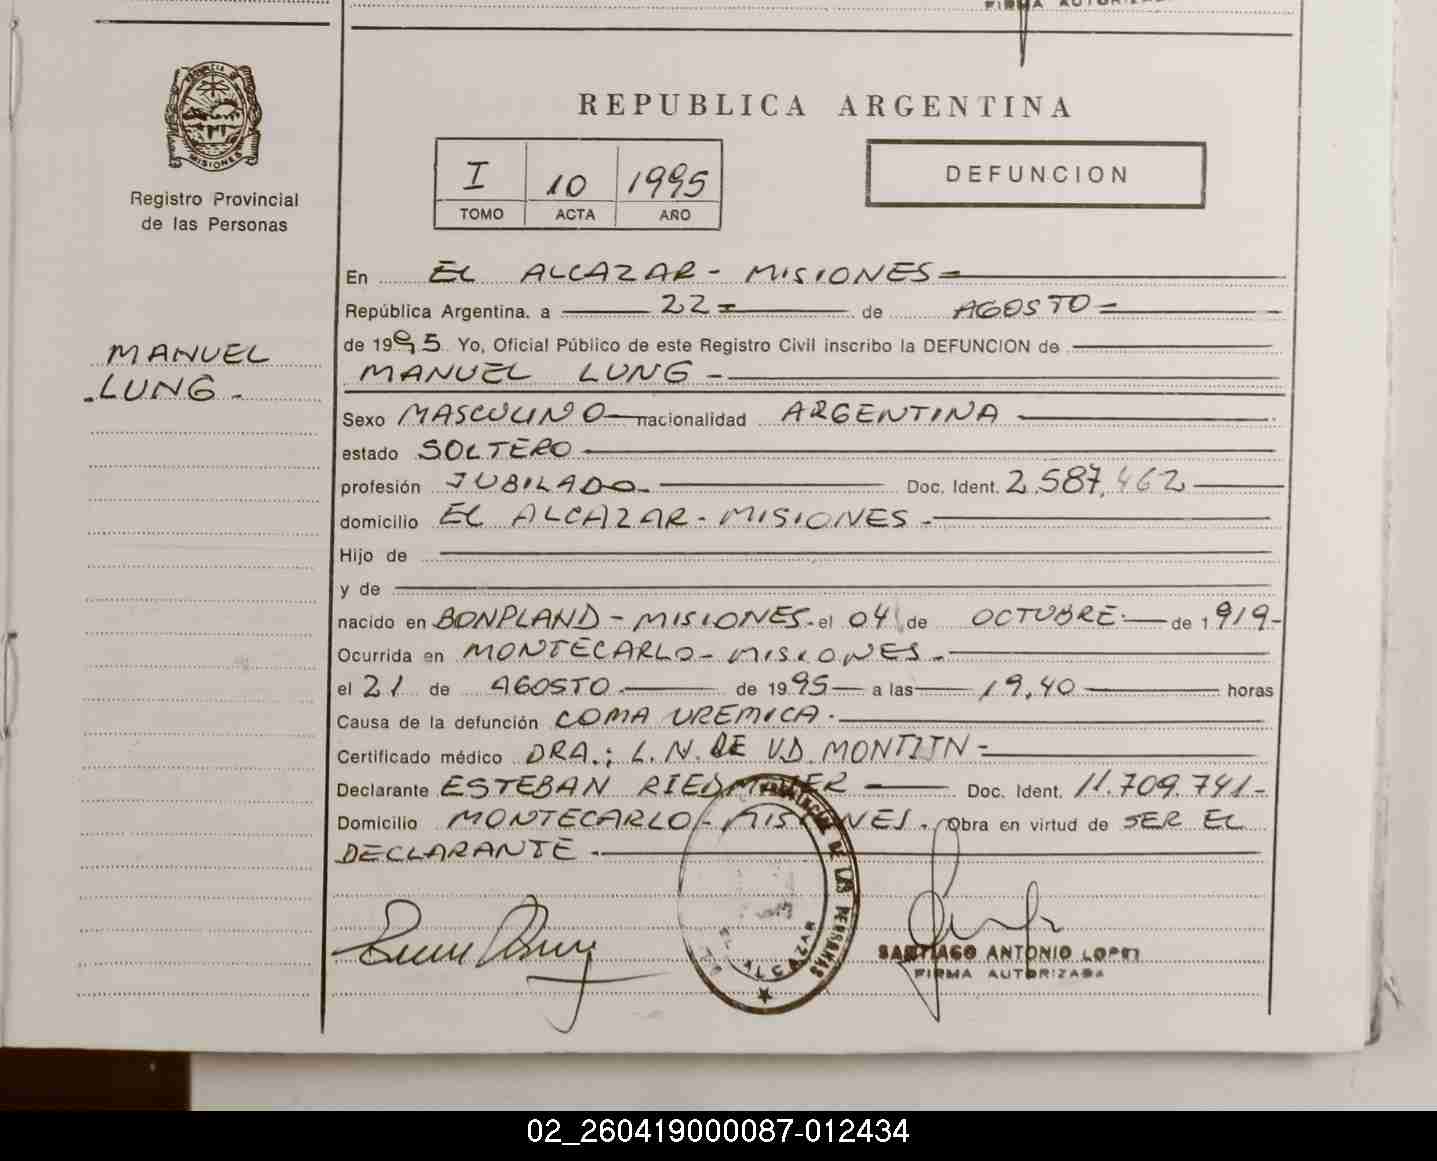 FIRMA AUTORIZADA
PROVINCIA DE
MISIONES
Registro Provincial
de las Personas
MANUEL
LUNG -
REPUBLICA ARGENTINA
I 10 1995
TOMO ACTA AÑO
DEFUNCION
En EL ALCAZAR - MISIONES =
República Argentina. a 22 = de AGOSTO =
de 1995 Yo, Oficial Público de este Registro Civil inscribo la DEFUNCION de
MANUEL LUNG -
Sexo MASCULINO nacionalidad ARGENTINA
estado SOLTERO
profesión JUBILADO - Doc. Ident. 2.587.462
domicilio EL ALCAZAR - MISIONES -
Hijo de
y de
nacido en BONPLAND - MISIONES - el 04 de OCTUBRE - de 1919 -
Ocurrida en MONTECARLO - MISIONES -
el 21 de AGOSTO - de 1995 - a las 19,40 horas
Causa de la defunción COMA UREMICA -
Certificado médico DRA.: L. N. DE V.D. -
Declarante ESTEBAN Doc. Ident. 11.709.741 -
Domicilio MONTECARLO - MISIONES. Obra en virtud de SER EL
DECLARANTE -
PROVINCIAL DE LAS PERSONAS
EL ALCAZAR
SANTIAGO ANTONIO LOPEZ
FIRMA AUTORIZADA
02_260419000087-012434